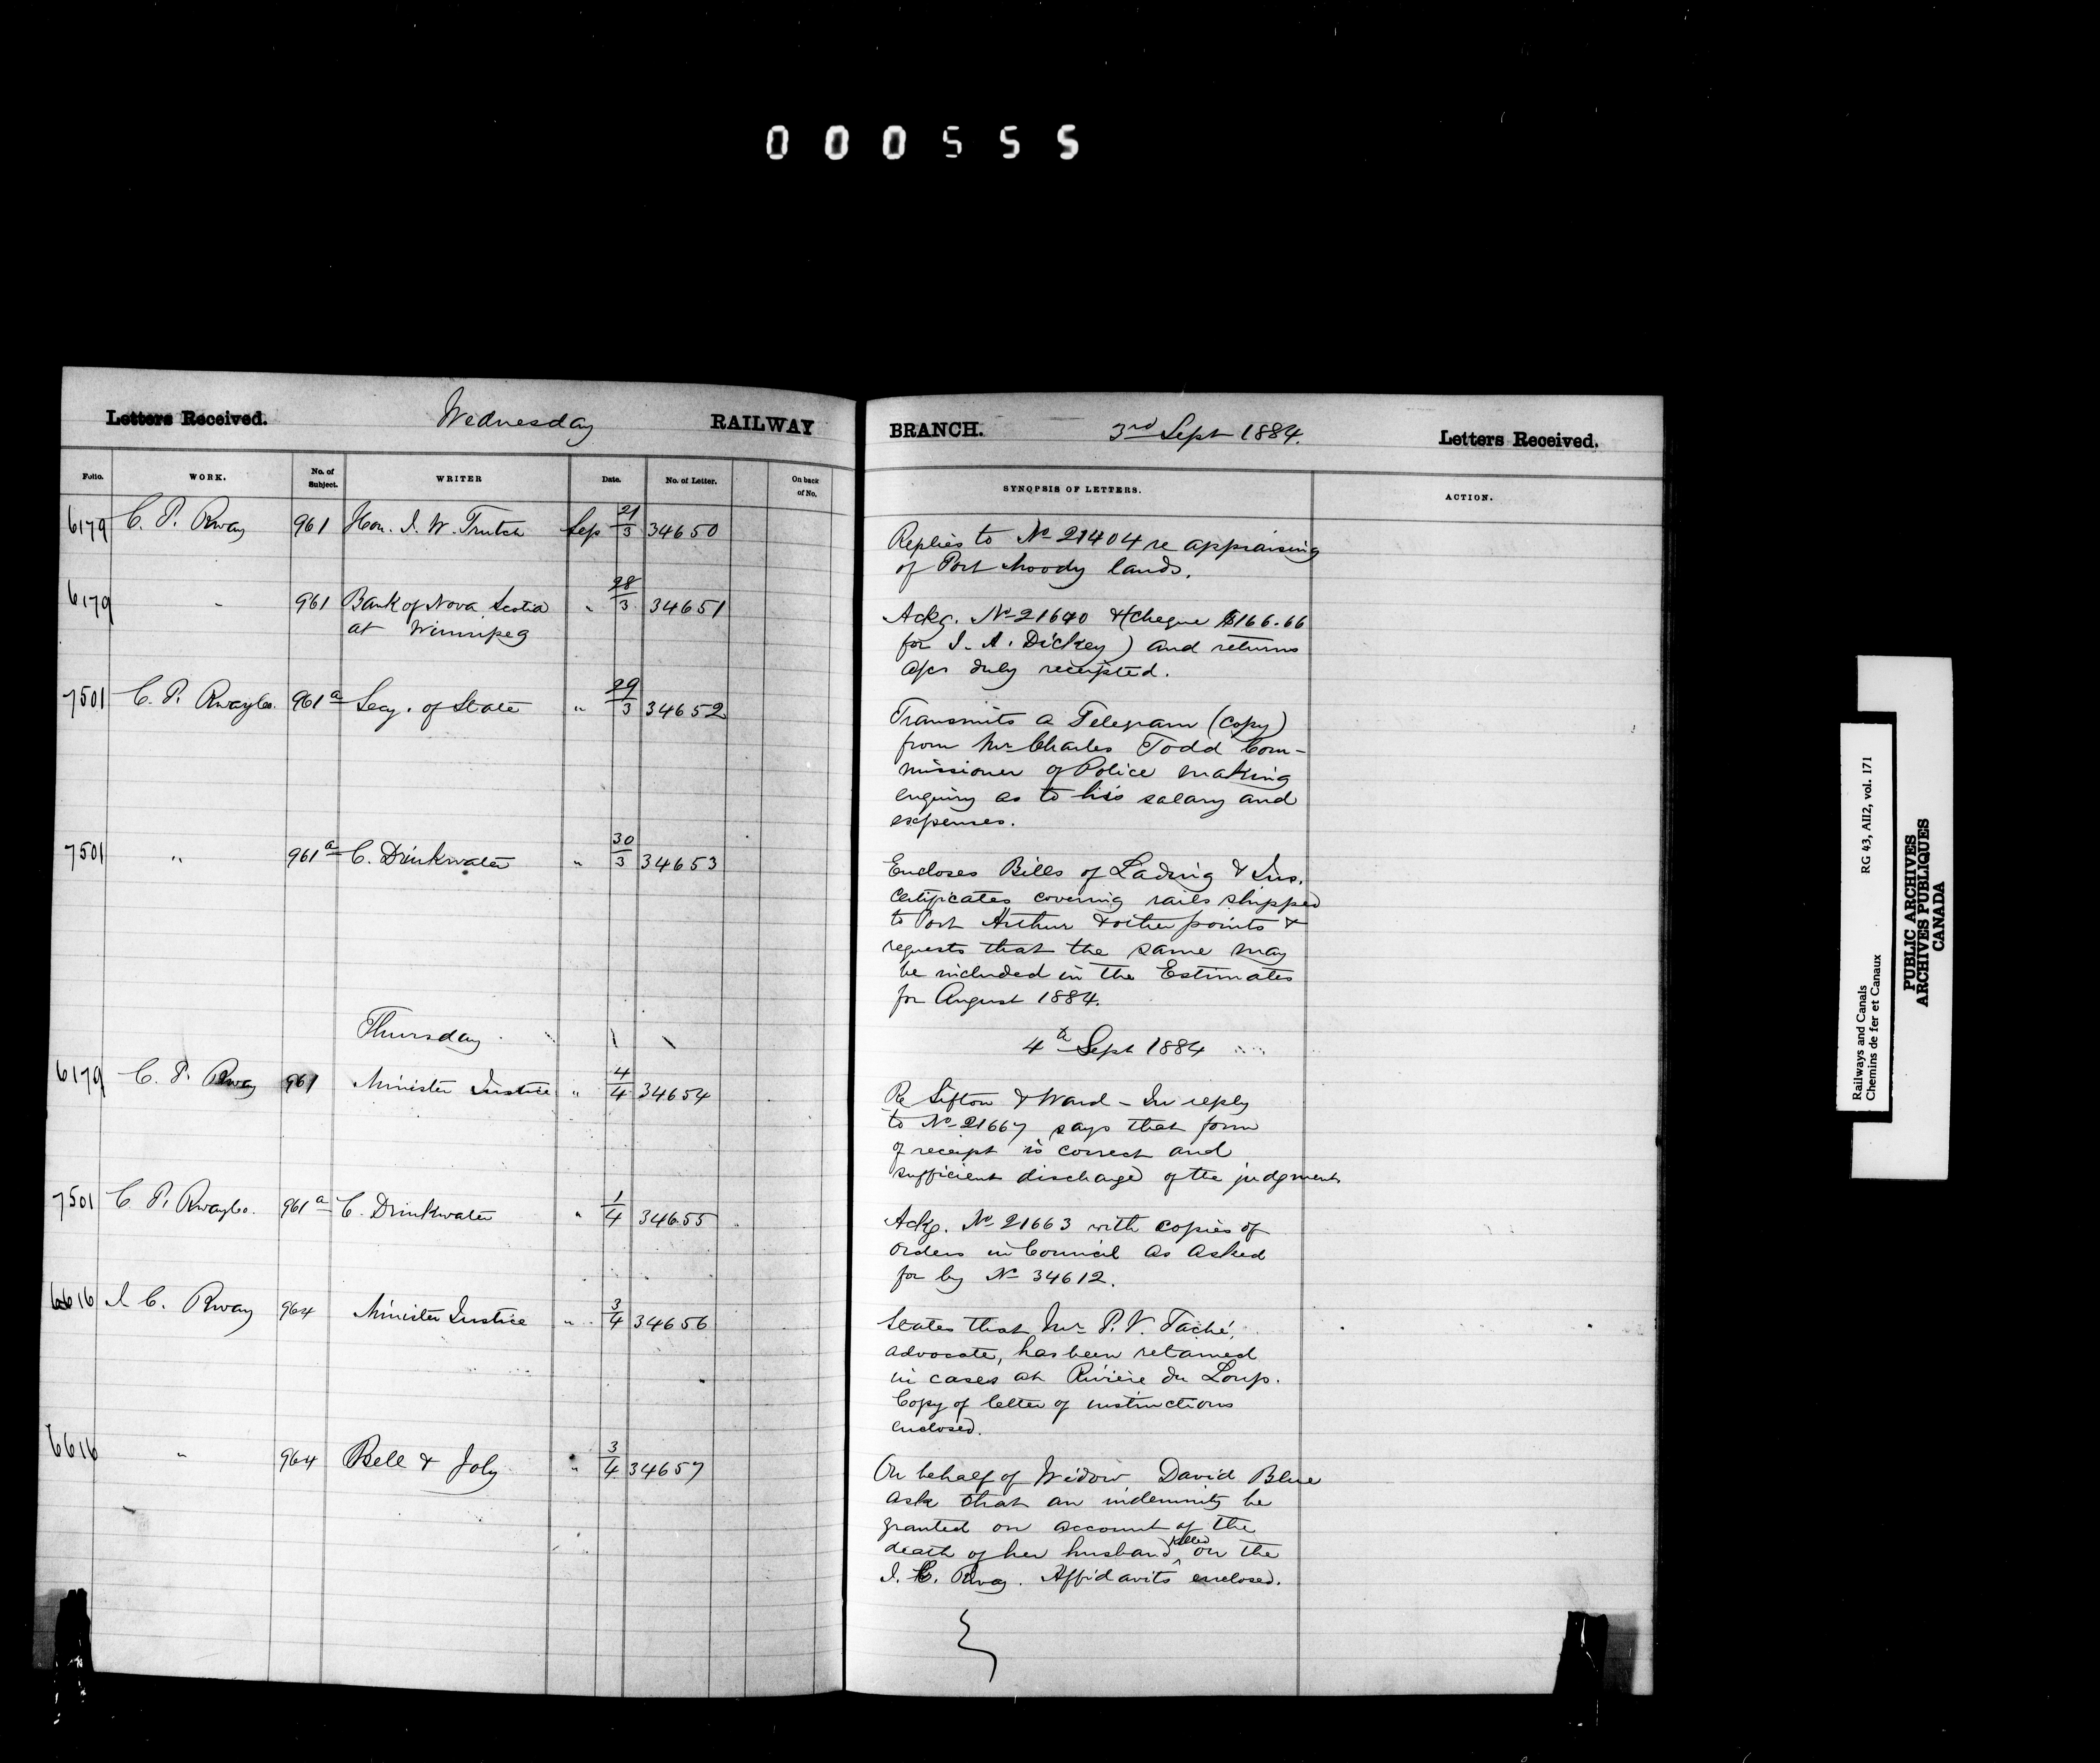 000555
Letters Received. Wednesday RAILWAY BRANCH. 3rd Sept 1884. Letters Received.
Folio. WORK. No. of Subject. WRITER Date. No. of Letter. On back of No. SYNOPSIS OF LETTERS. ACTION.
6179 C. P. Rway 961 Hon. J. W. Trutch Sep 21/3 34650
Replies to No 21404 re appraising
of Port Moody lands.
6179 " 961 Bank of Nova Scotia " 28/3 34651
at Winnipeg
Ackg. No 21640 & (cheque $166.66
for J. A. Dickey) and returns
a/cs duly receipted.
7501 C. P. Rway Co. 961a Secy. of State " 29/3 34652
Transmits a Telegram (copy)
from Mr Charles Todd Com-
missioner of Police making
enquiry as to his salary and
expenses.
7501 " 961a C. Drinkwater " 30/3 34653
Encloses Bills of Lading & Ins.
Certificates covering rails shipped
to Port Arthur & other points &
requests that the same may
be included in the Estimates
for August 1884.
Thursday " \ \ 4th Sept 1884
6179 C. P. Rway 961 Minister Justice " 4/4 34654
Re Sifton & Ward - In reply
to No 21667 says that form
of receipt is correct and
sufficient discharge of the judgment
7501 C. P. Rway Co. 961a C. Drinkwater " 1/4 34655
Ackg. No 21663 with copies of
Orders in Council as asked
for by No 34612.
6616 I. C. Rway 964 Minister Justice " 3/4 34656
States that Mr P. V. Taché,
advocate, has been retained
in cases at Rivière du Loup.
Copy of letter of instructions
enclosed.
6616 " 964 Bell & Joly " 3/4 34657
On behalf of Widow David Blue
ask that an indemnity be
granted on account of the
death of her husband killed on the
I. C. Rway. Affidavits enclosed.
Railways and Canals RG 43, AII2, vol. 171
Chemins de fer et Canaux
PUBLIC ARCHIVES
ARCHIVES PUBLIQUES
CANADA